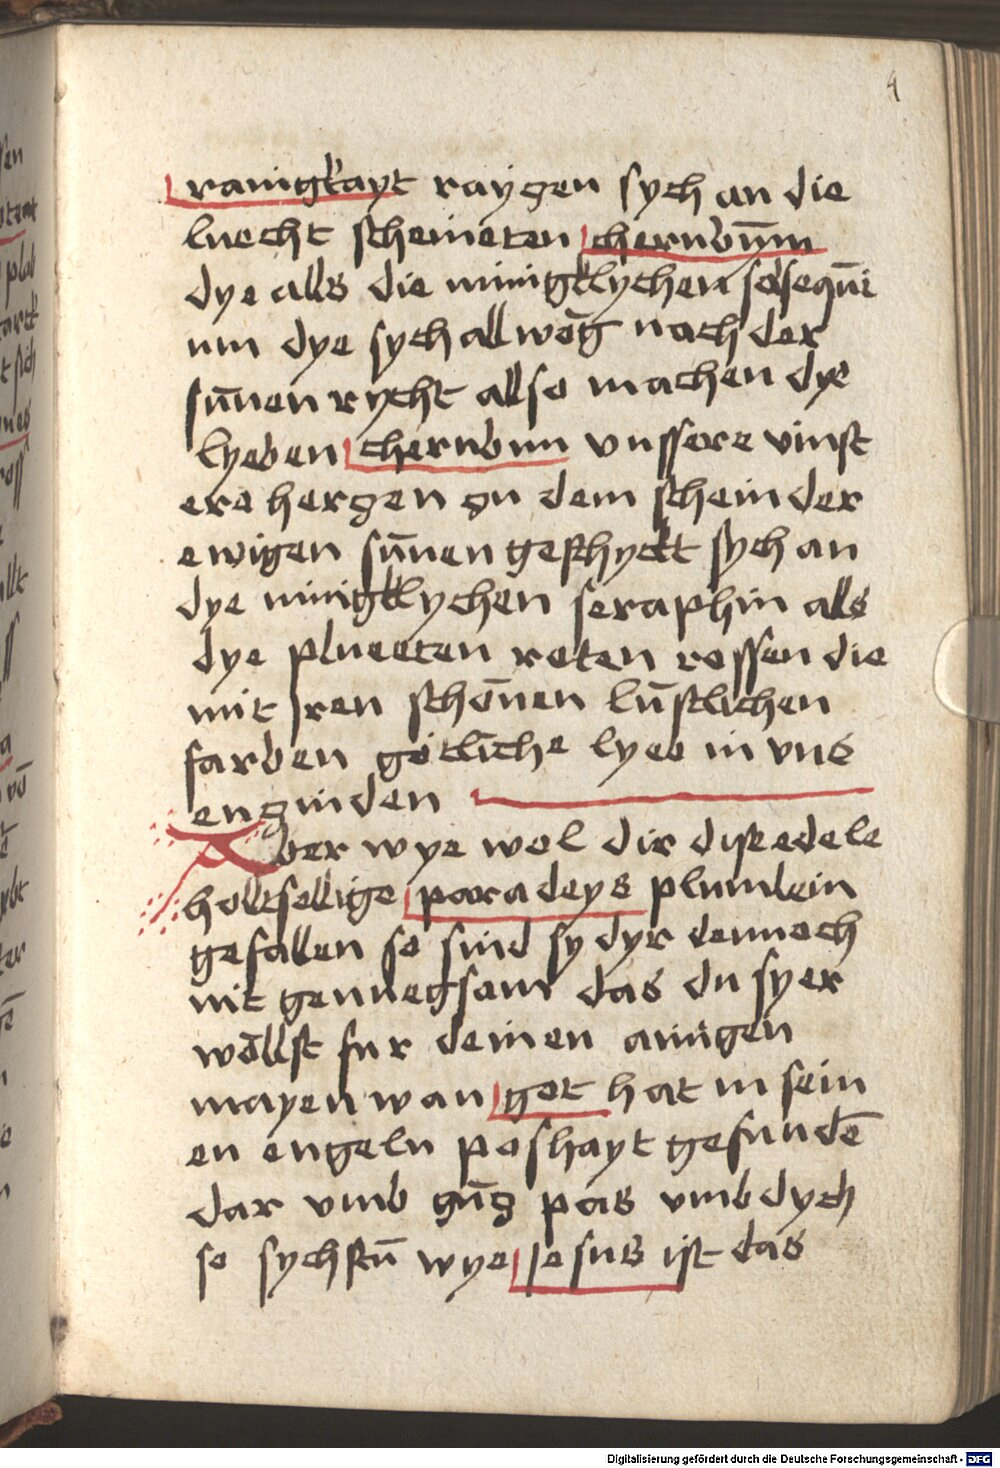 4
rainigkayt raygen sych an die
luecht scheineten cherubūm
dye alls die minigklychen solsequi
um dye sych allweg nach der
sūnen rycht allso machen dye
lyeben cherubin vnssere vinst
ere hergen zu dem schein der
ewigen sūnen geschyckt sych an
dye minigklychen seraphin als
dye plueeten roten rossen die
mit jren schōnen lūstlichen
farben gotliche lyeb in vns
enzinden
Aber wye wol dir disse edele
holtsellige paradeys plumlein
gefallen so sind sy dyr dennoch
nit genuegsam das du sy er
wöllst fur deinen ainigen
mayen wan got hat in sein
en engeln poshayt gefundē
dar vmb gūg pas vmb dych
so sychstū wye jesus ist das
Digitalisierung gefördert durch die Deutsche Forschungsgemeinschaft - DFG